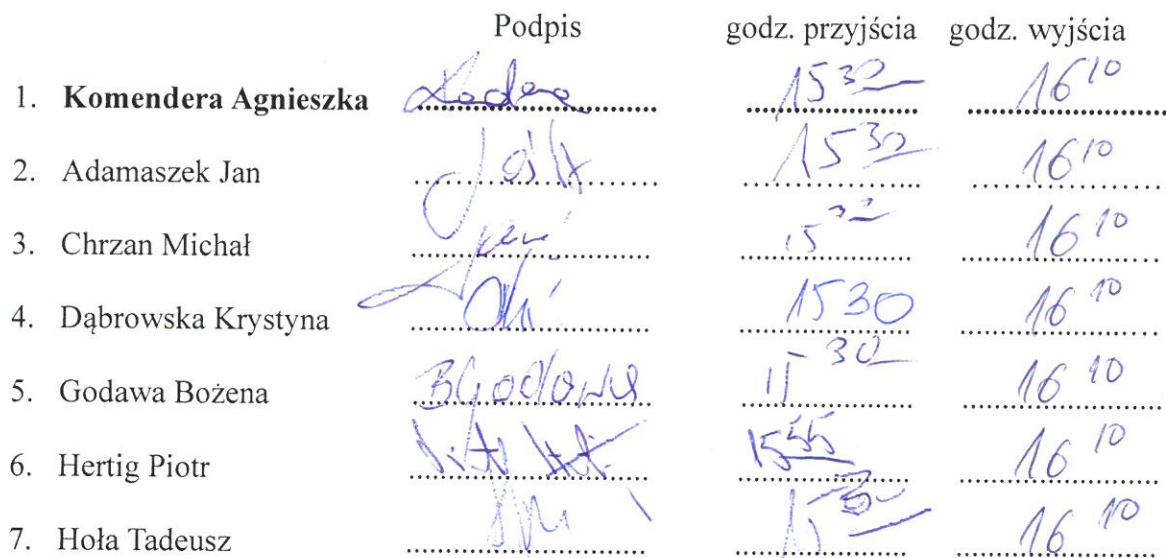 Podpis godz. przyjścia godz. wyjścia
1. Komendera Agnieszka 15 30 16 10
2. Adamaszek Jan 15 30 16 10
3. Chrzan Michał 15 16 10
4. Dąbrowska Krystyna 1530 16 10
5. Godawa Bożena BGodawa 15 30 16 10
6. Hertig Piotr 15 55 16 10
7. Hoła Tadeusz 15 30 16 10